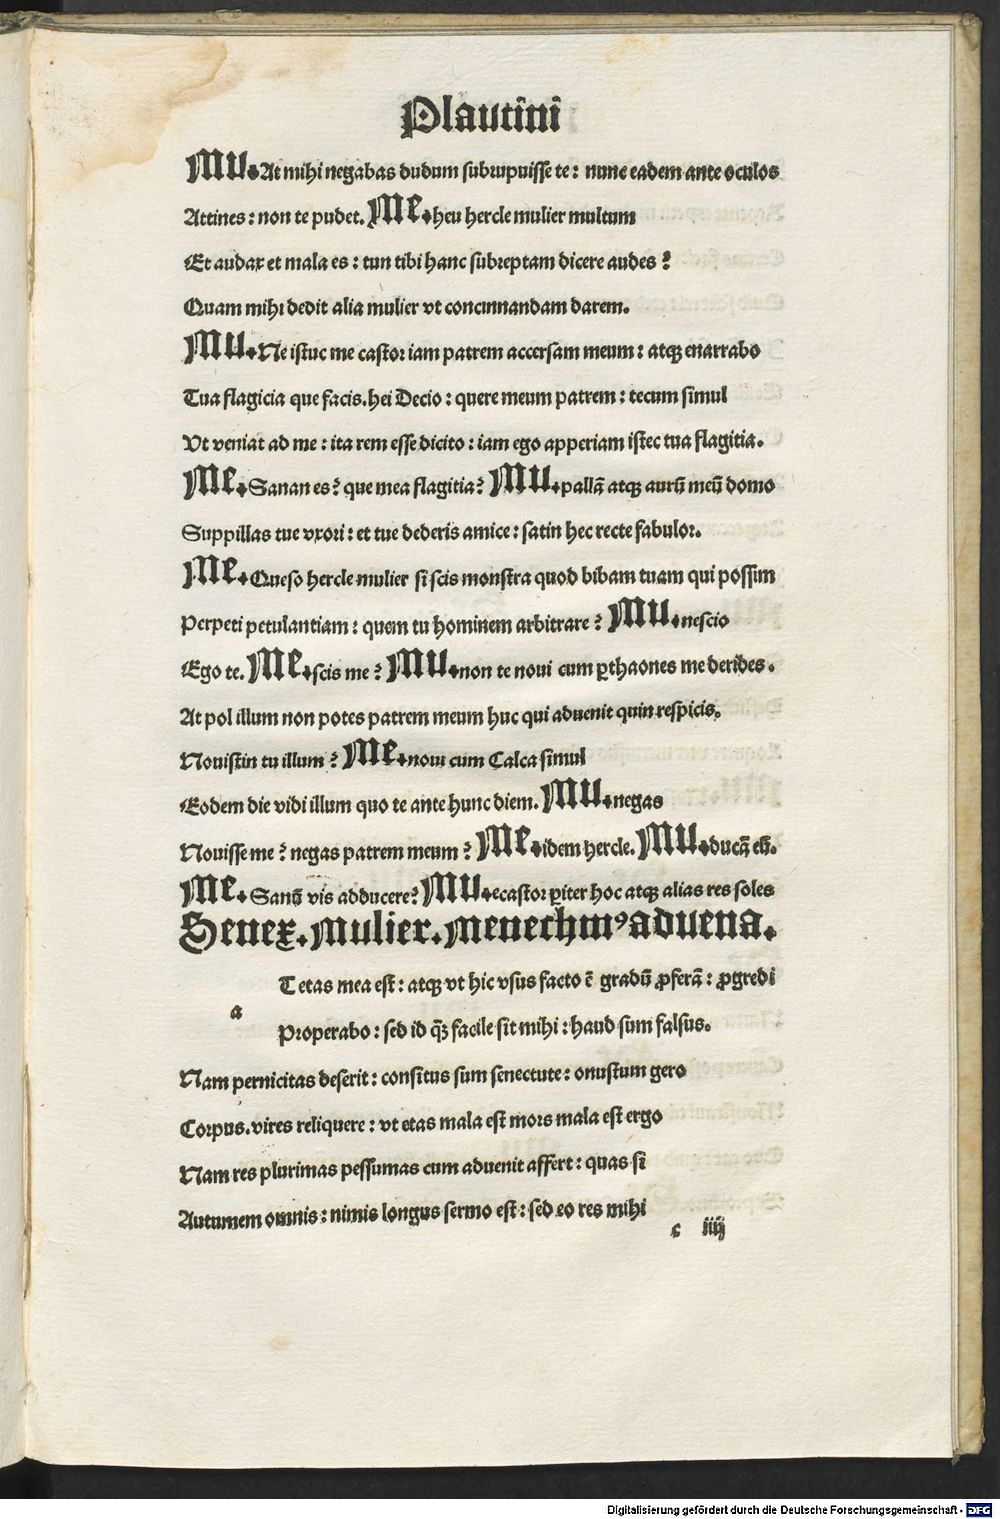 Plautini
Mu. At mihi negabas dudum subrupuisse te: nunc eadem ante oculos
Attines: non te pudet. Me. heu hercle mulier multum
Et audax et mala es: tun tibi hanc subreptam dicere audes?
Quam mihi dedit alia mulier vt concinnandam darem.
Mu. Ne istuc me castor iam patrem accersam meum: atqꝫ enarrabo
Tua flagicia que facis. hei Decio: quere meum patrem: tecum simul
Vt veniat ad me: ita rem esse dicito: iam ego apperiam istec tua flagitia.
Me. Sanan es? que mea flagitia? Mu. pallā atqꝫ aurū meū domo
Suppillas tue vxori: et tue dederis amice: satin hec recte fabulor.
Me. Queso hercle mulier si scis monstra quod bibam tuam qui possim
Perpeti petulantiam: quem tu hominem arbitrare? Mu. nescio
Ego te. Me. scis me? Mu. non te noui cum ꝑthaones me derides.
At pol illum non potes patrem meum huc qui aduenit quin respicis.
Nouistin tu illum? Me. noui cum Calca simul
Eodem die vidi illum quo te ante hunc diem. Mu. negas
Nouisse me? negas patrem meum? Me. idem hercle. Mu. ducā
Me. Sanū vis adducere? Mu. ecastor ꝑiter hoc atqꝫ alias res soles
Senex. Mulier. Menechmꝰ aduena.
T etas mea est: atqꝫ vt hic vsus facto ē gradū ꝓferā: ꝓgredi
a
Properabo: sed id qꝫ facile sit mihi: haud sum falsus.
Nam pernicitas deserit: consitus sum senectute: onustum gero
Corpus. vires reliquere: vt etas mala est mors mala est ergo
Nam res plurimas pessumas cum aduenit affert: quas si
Autumem omnis: nimis longus sermo est: sed eo res mihi
c iiij
Digitalisierung gefördert durch die Deutsche Forschungsgemeinschaft - DFG